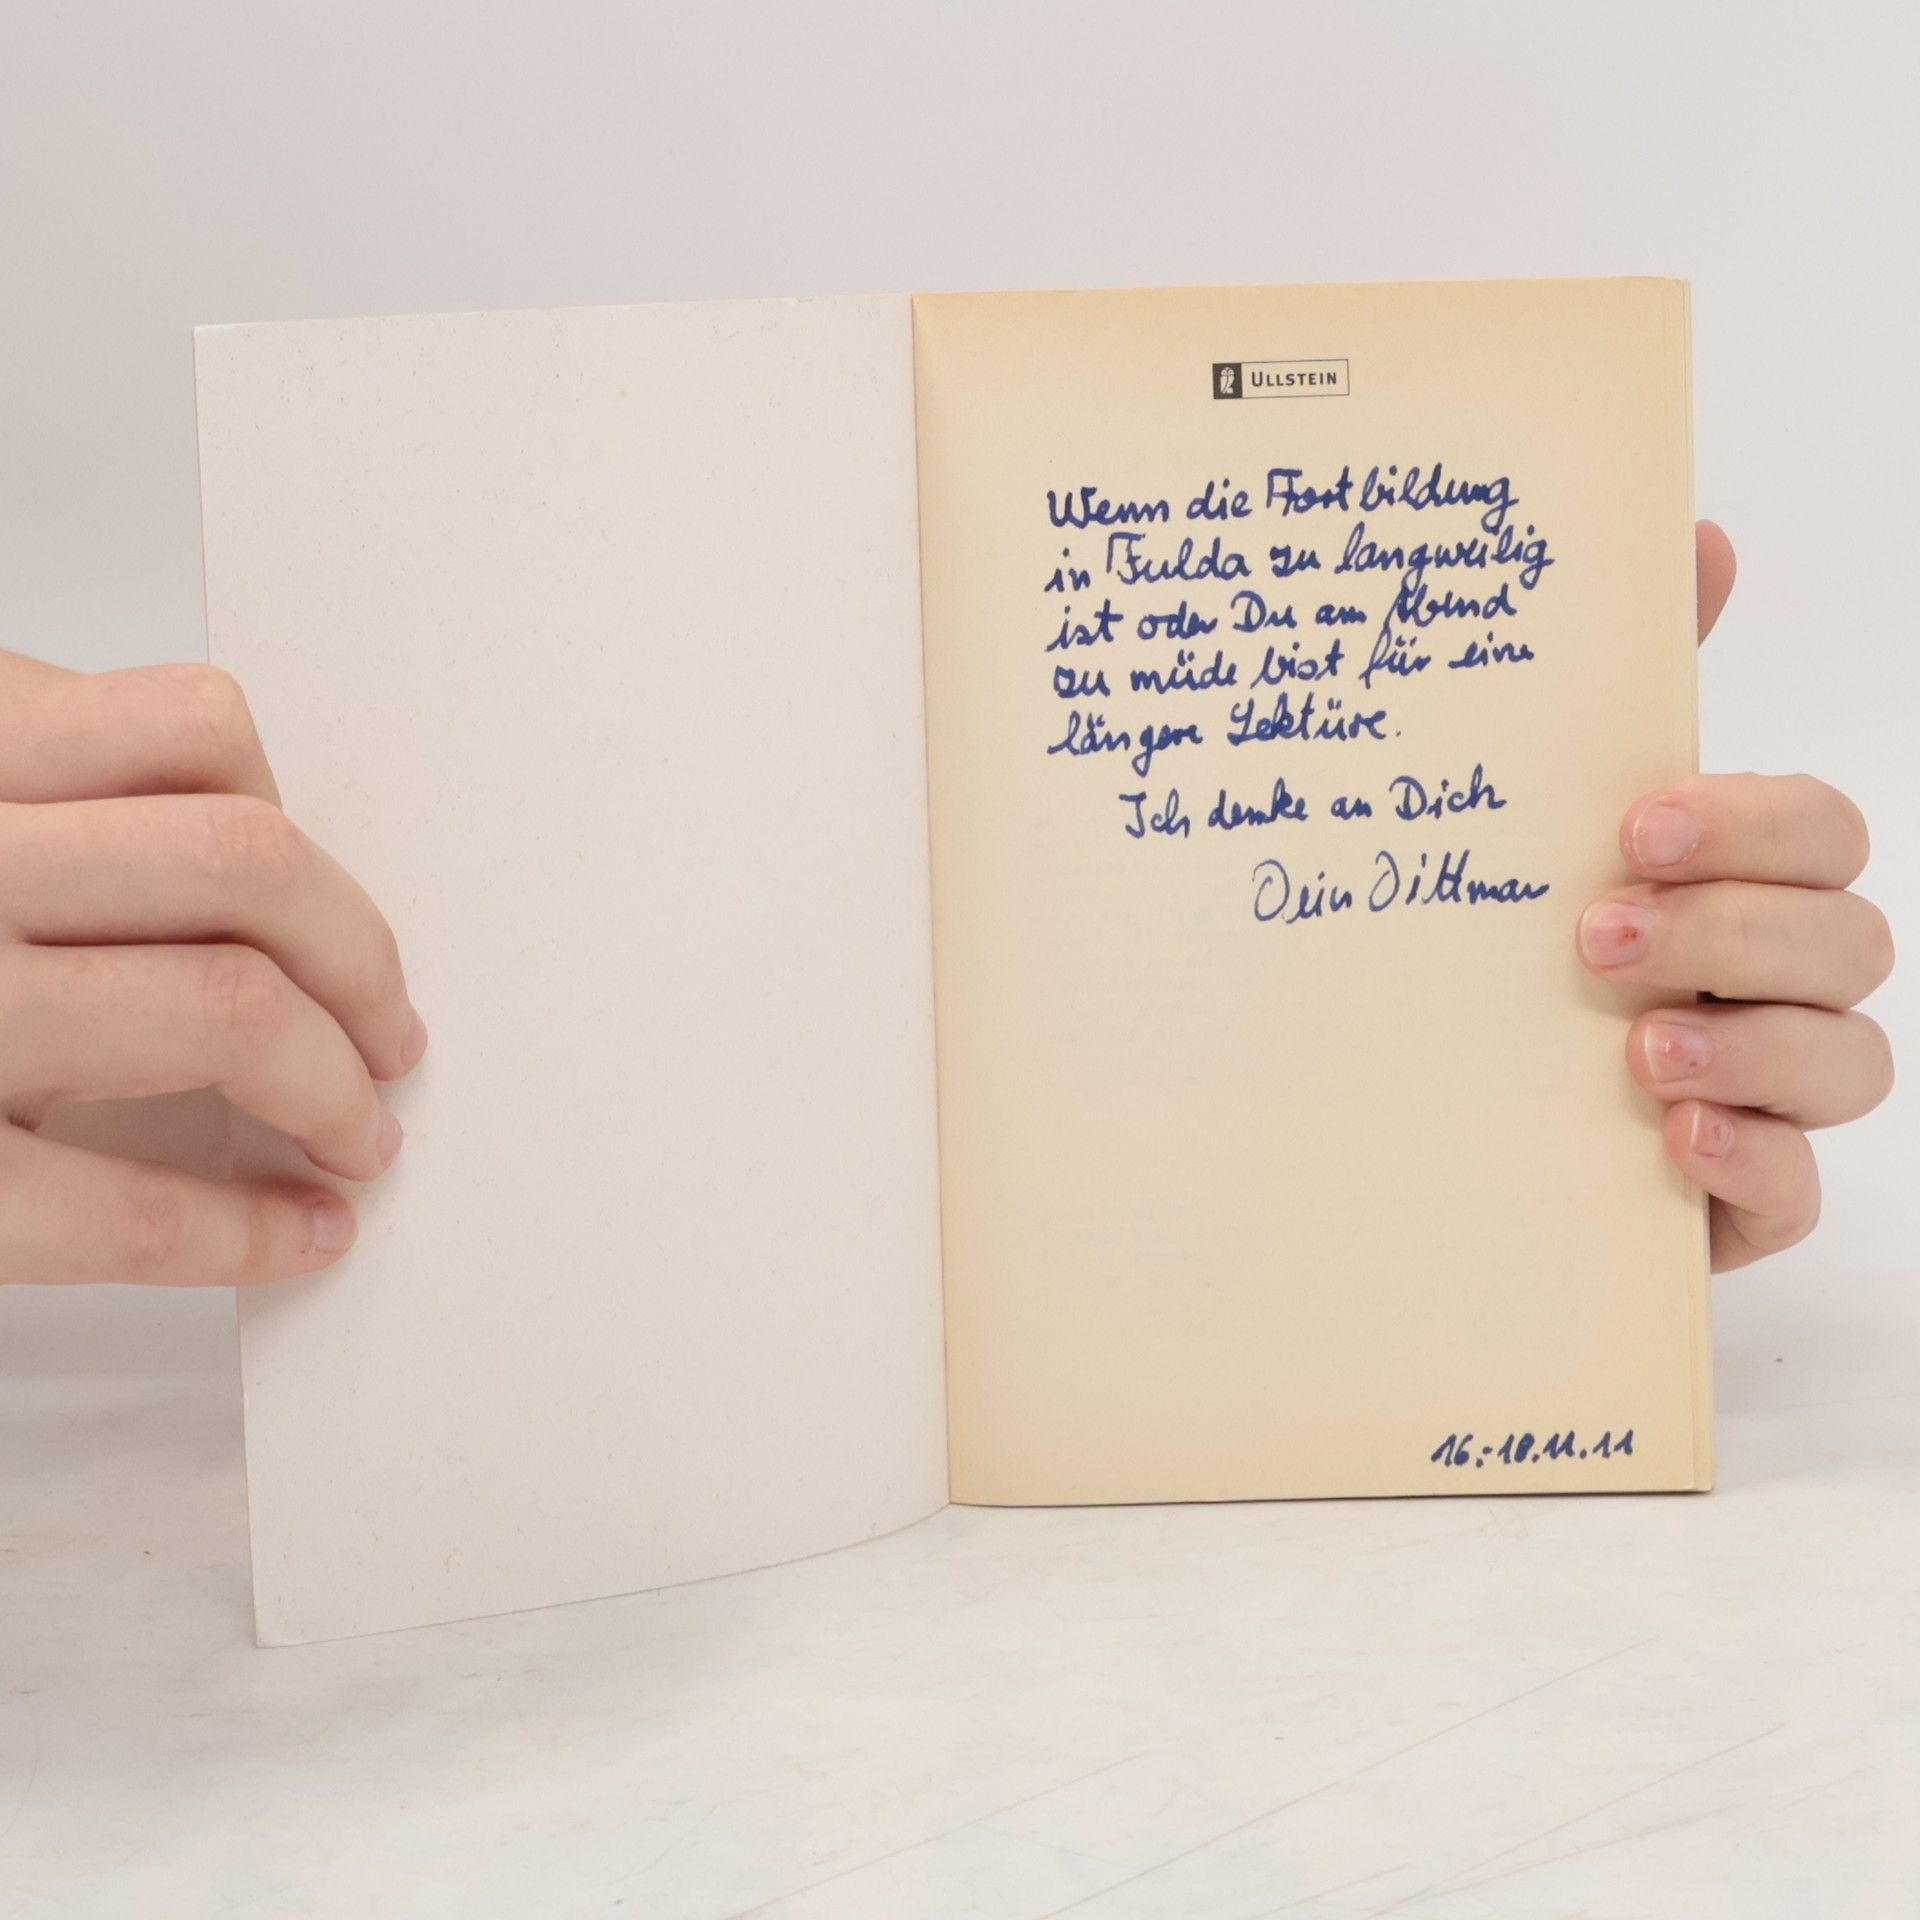 ULLSTEIN
Wenn die Fortbildung
in Fulda zu langweilig
ist oder Du am Abend
zu müde bist für eine
längere Lektüre.
Ich denke an Dich
Dein Dittmar
16.-18.11.11